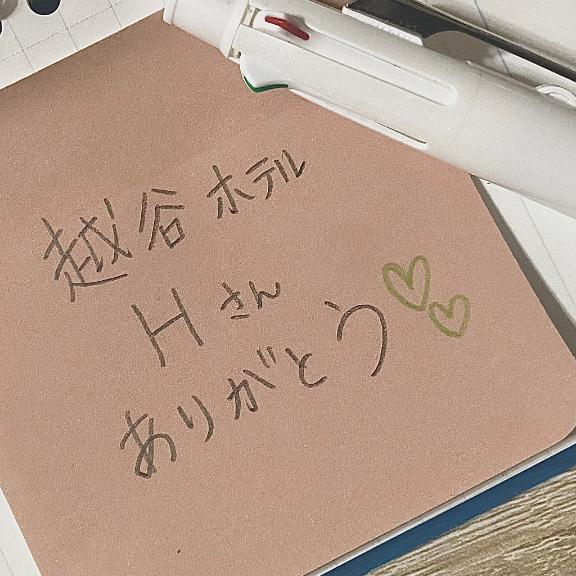 越谷 ホテル
H さん
ありがとう♡♡